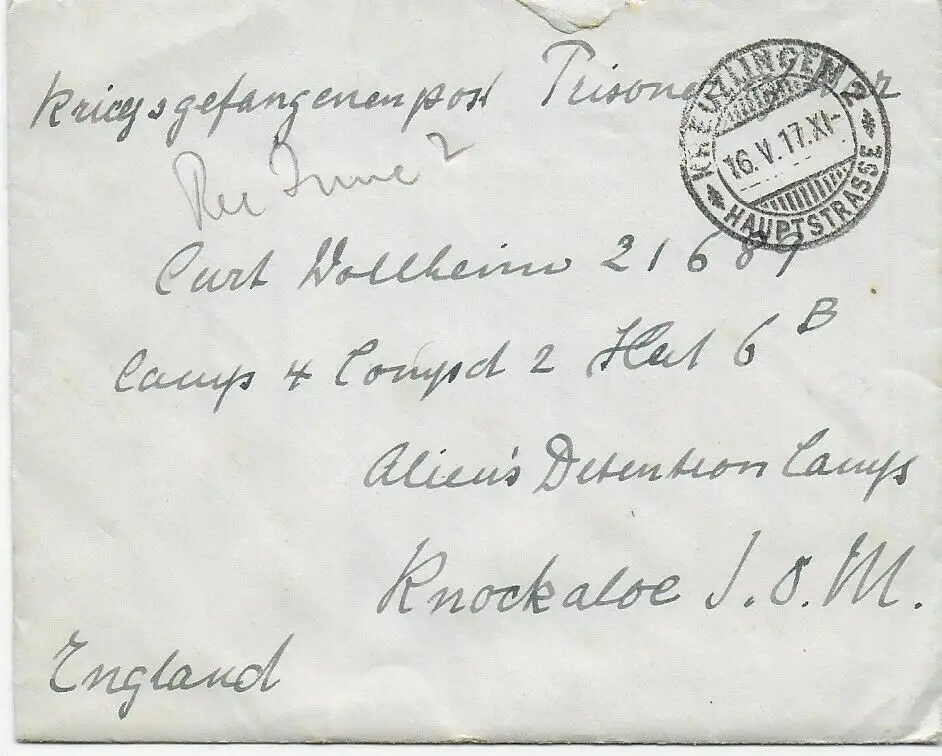 Kriegsgefangenenpost Prisoner War
KREUZLINGEN 2
16.V.17.XI-
HAUPTSTRASSE
Rec June 2
Curt Wollheim 21689
Camp 4 Compd 2 Hut 6 B
Alien's Detention Camps
Knockaloe I.O.M.
England